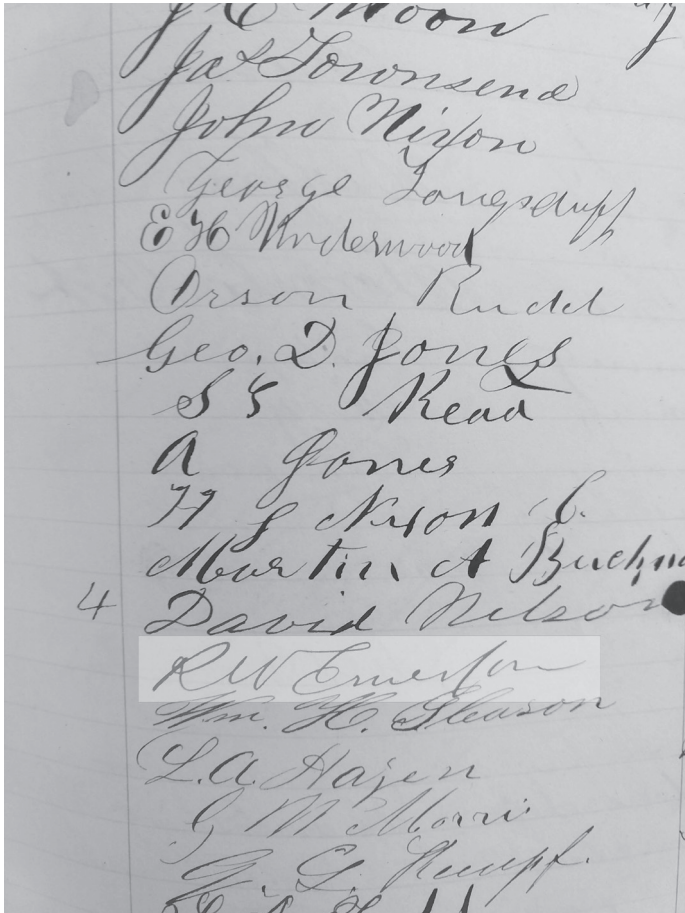 J C Moon
Jas Townsend
John Nixon
George Longsduff
E H Underwood
Orson Rudd
Geo. D. Jones
S G Read
A Jones
H J Nixon
Martin A
4 David Nelson
R W Emerson
Wm. H. Gleason
L. A Hazen
G M Morris
G. L. Kumpf.